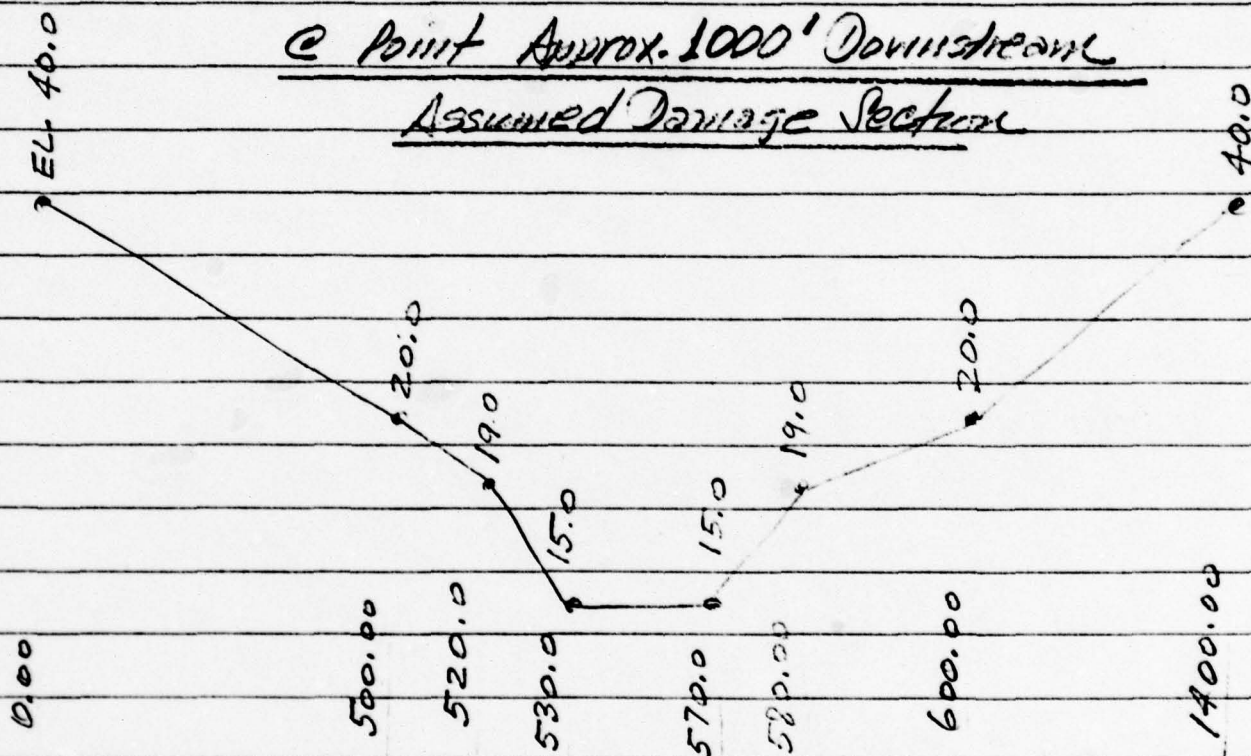 @ Point Approx. 1000' Downstream
Assumed Damage Section
EL. 40.0
20.0
19.0
15.0
15.0
19.0
20.0
40.0
0.00
500.00
520.0
530.0
570.0
580.00
600.00
1400.00